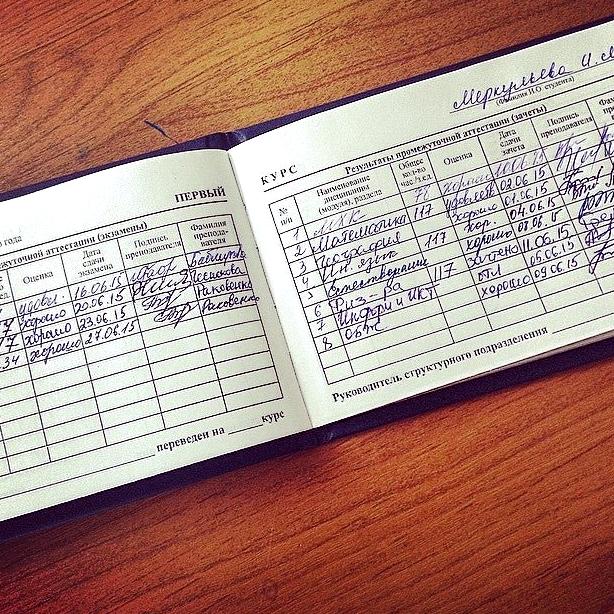 ПЕРВЫЙ
года
межуточной аттестации (экзамены)
Оценка Дата сдачи экзамена Подпись преподавателя Фамилия преподавателя
удовл. 16.06.15
хорошо 20.06.15
хорошо 23.06.15 Раковенко
34 хорошо 27.06.15 Раковенко
переведен на ____ курс
Меркульева И.М
(фамилия И.О. студента)
КУРС
Результаты промежуточной аттестации (зачеты)
№ п/п Наименование дисциплины (модуля), раздела Общее кол-во час./з.ед. Оценка Дата сдачи зачета Подпись преподавателя
1 МХК 78 хорошо
2 Математика 117 удовлет 02.06.15
3 География хорошо 01.06.15
4 Ин. язык 117 хор. 04.06.15
5 Естествознание хорошо
6 Физ-ра 117 зачтено 11.06.15
7 Информ и ИКТ отл 05.06.15
8 ОБЖ хорошо 09.06.15
Руководитель структурного подразделения